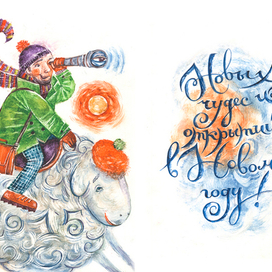 Новых
чудес и
открытий
в Новом
году!